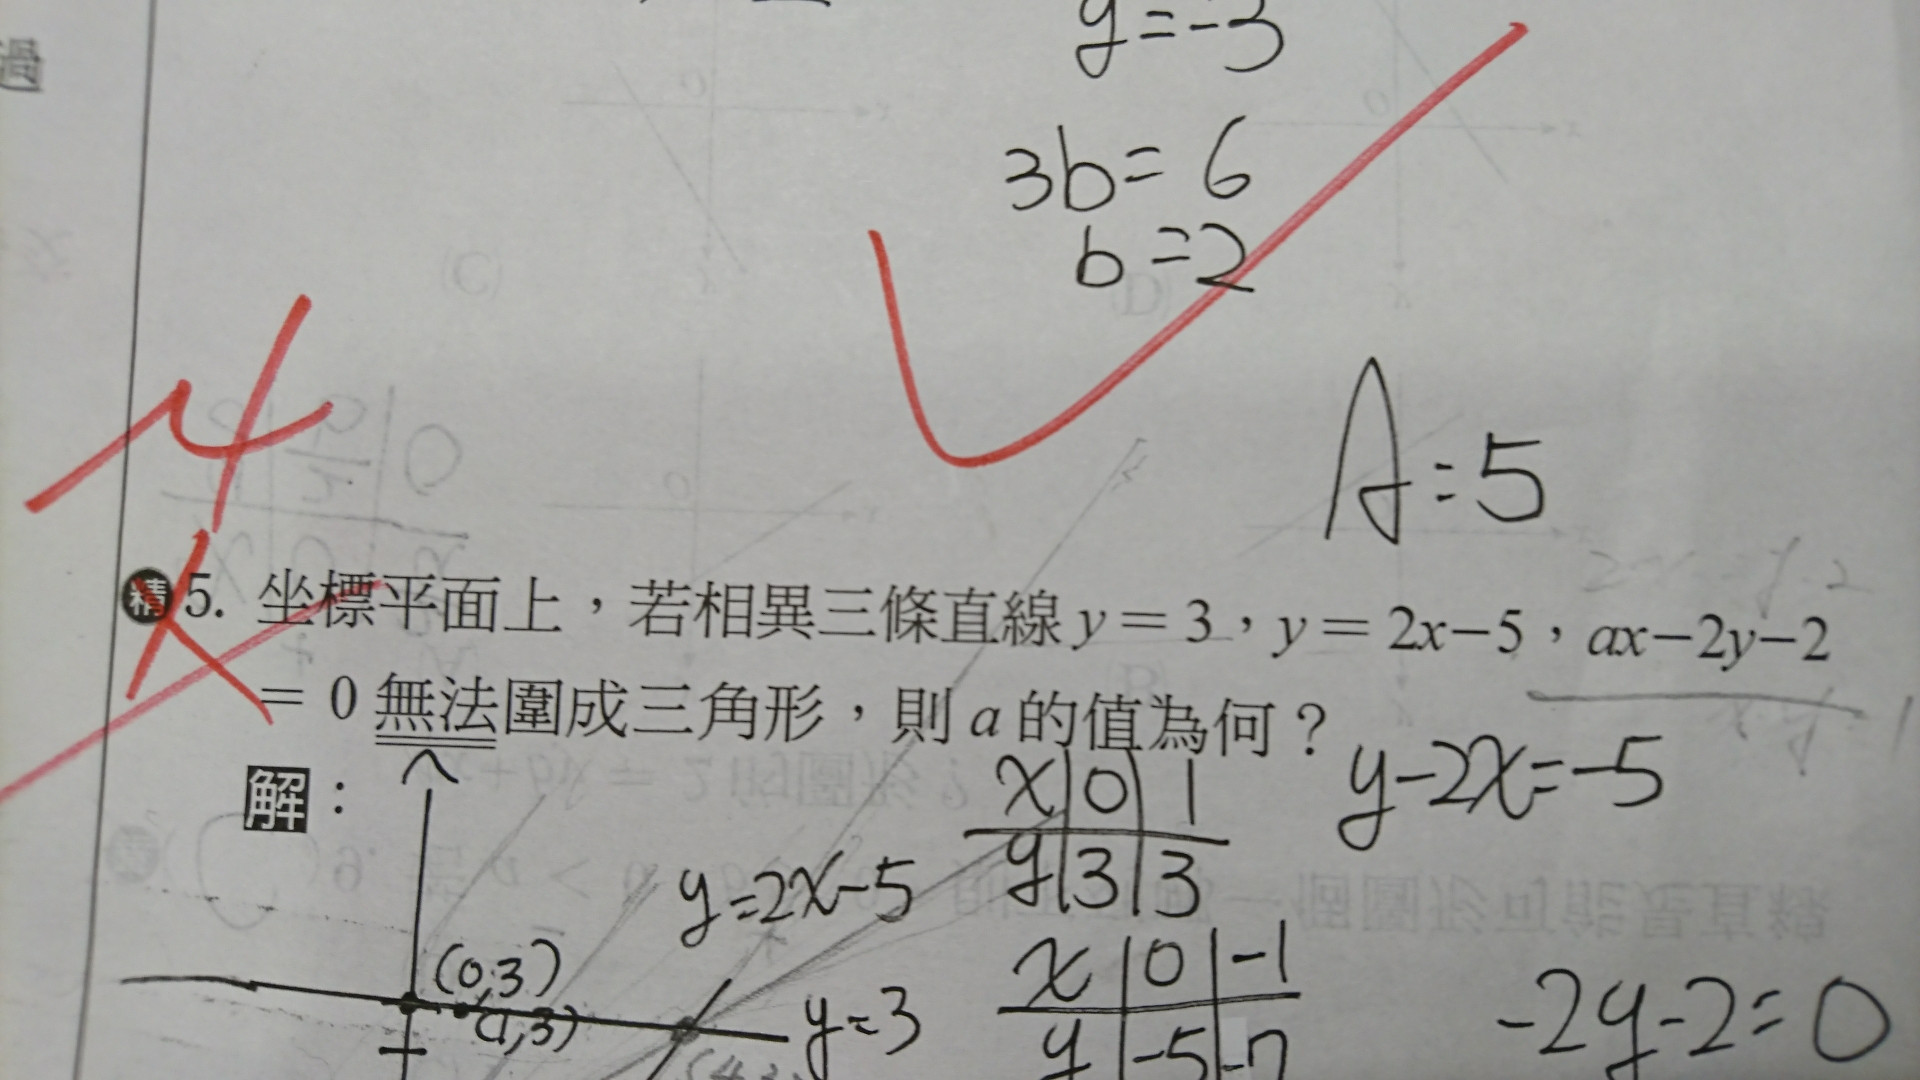 過
y=-3
3b=6
b=2
A=5
精 5. 坐標平面上，若相異三條直線 y=3，y=2x-5，ax-2y-2
=0 無法圍成三角形，則 a 的值為何？
解：
x 0 1
y 3 3
y-2x=-5
y=2x-5
(0,3)
(1,3)
y=3
x 0 -1
y -5 -7
-2y-2=0